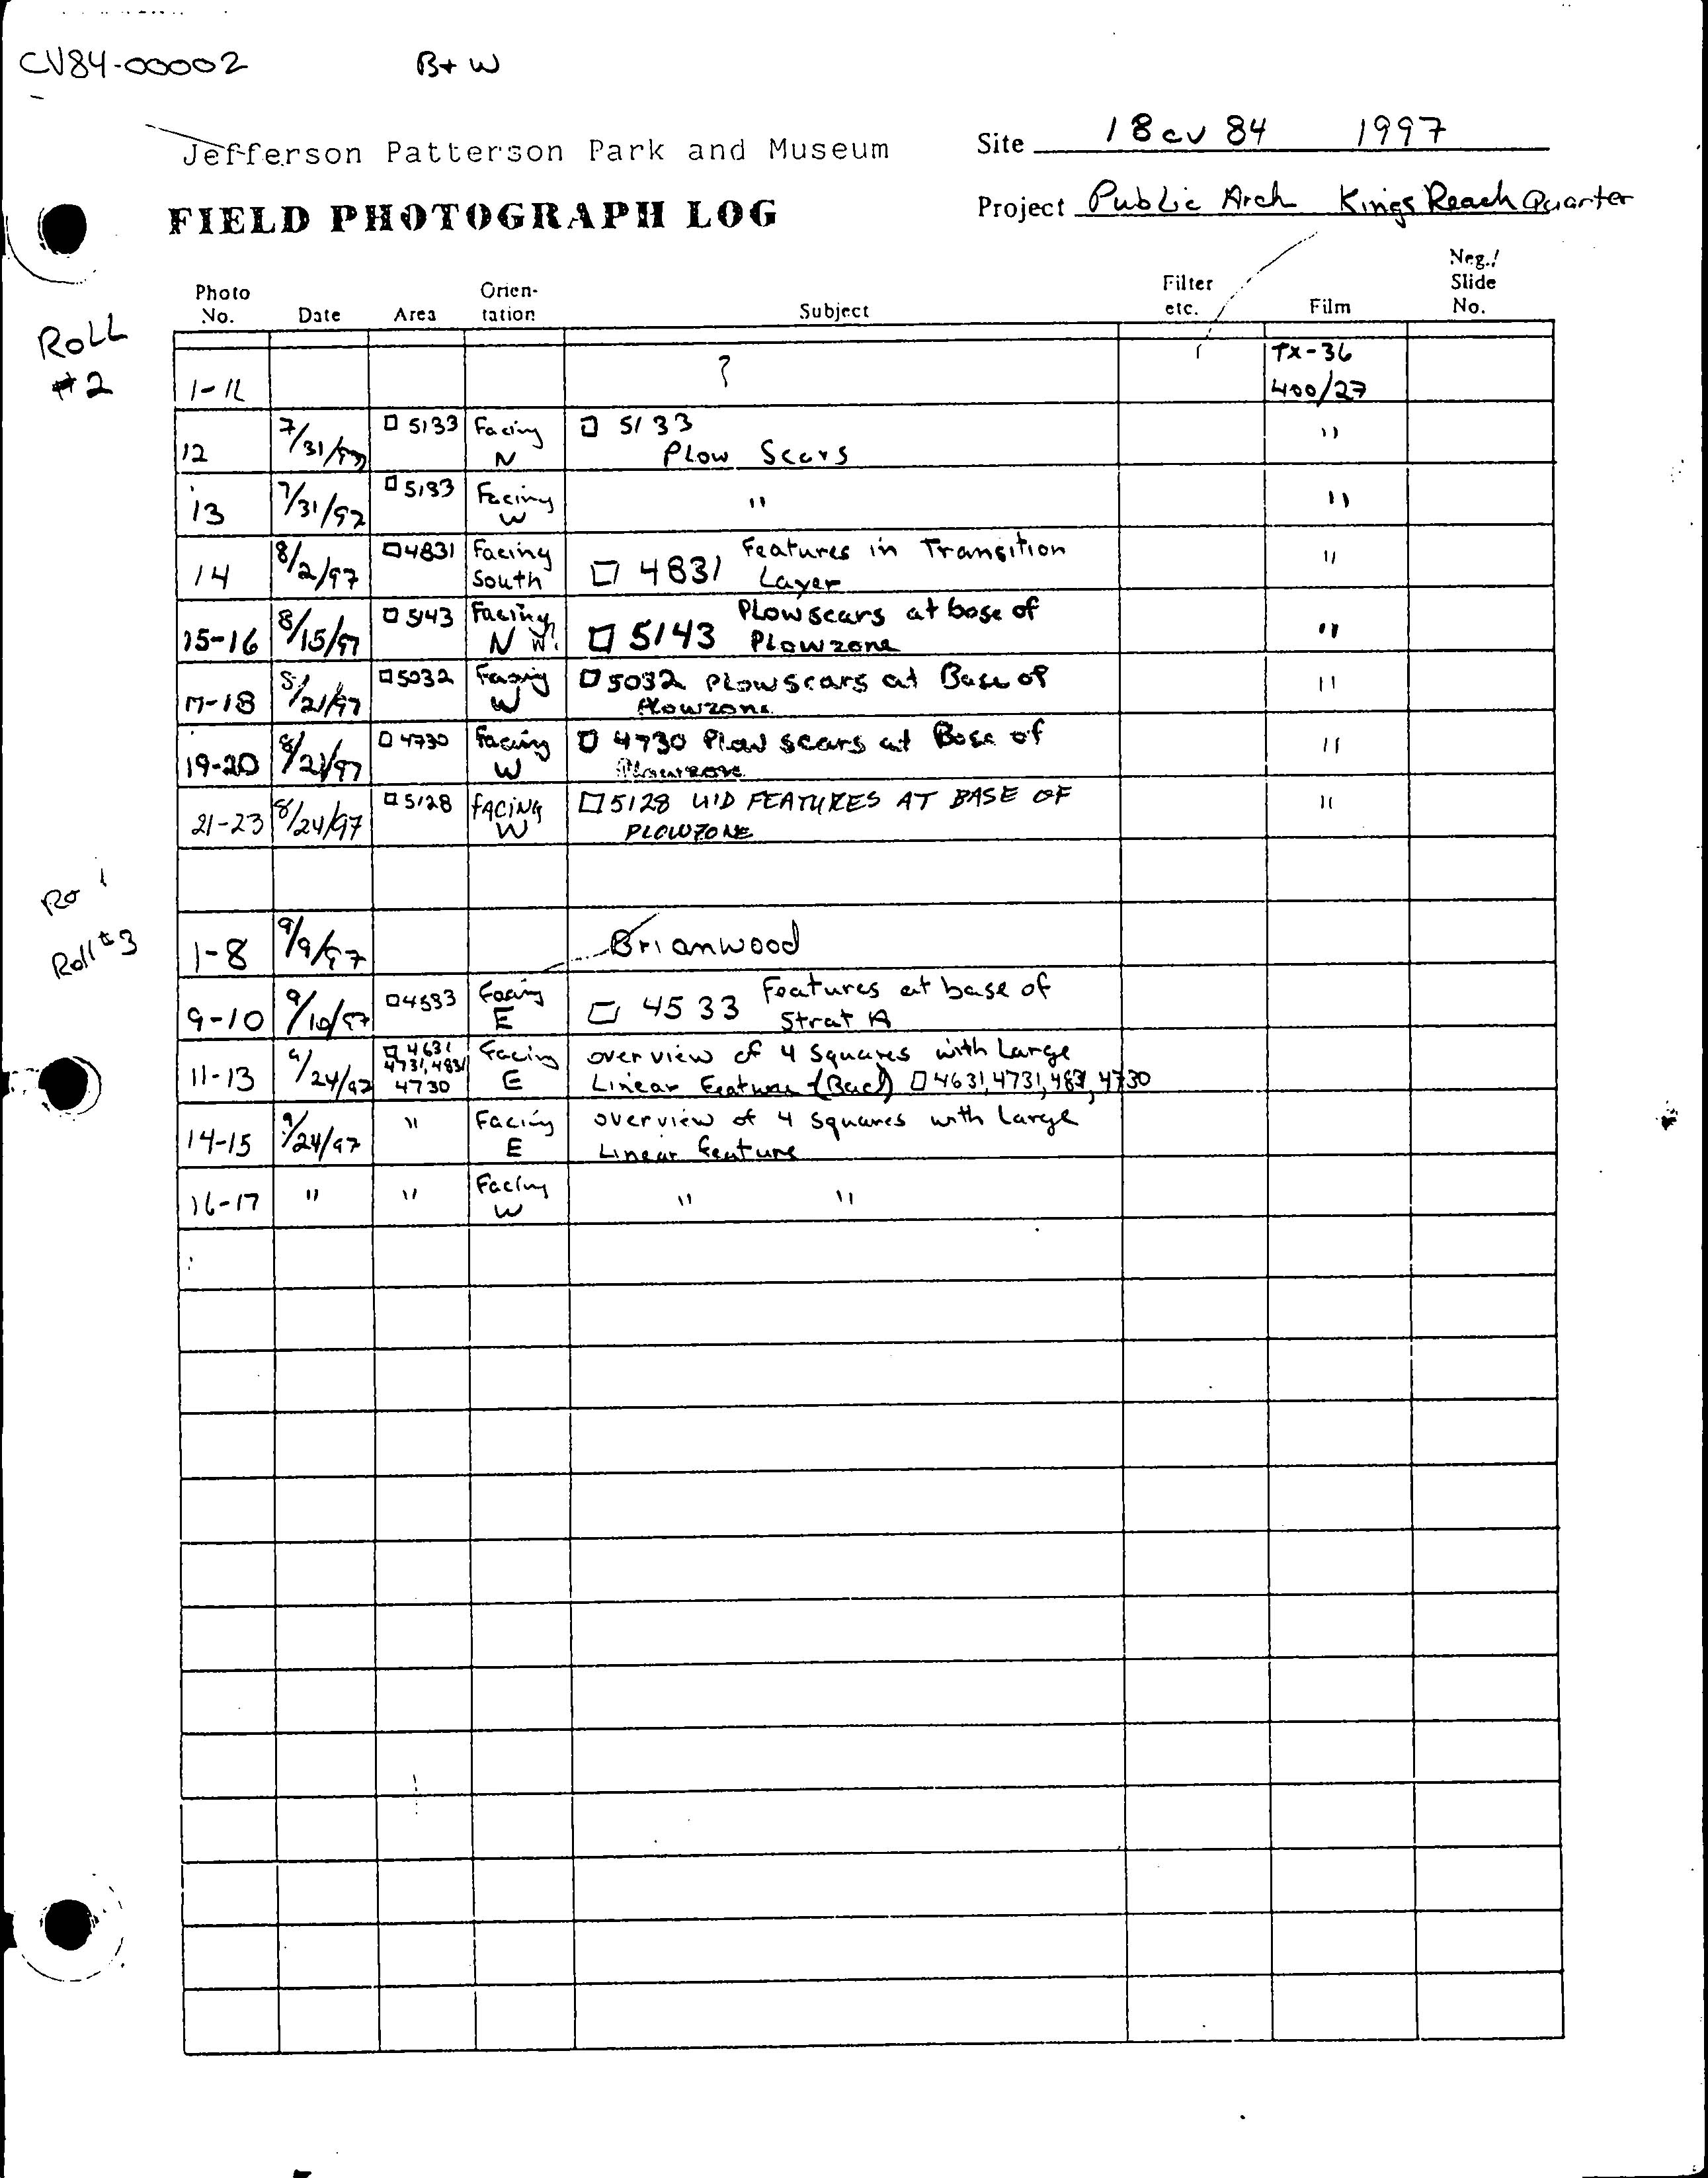 CV84-00002 B+W
Jefferson Patterson Park and Museum
Site 18 CV 84 1997
FIELD PHOTOGRAPH LOG
Project Public Arch Kings Reach Quarter
Photo No. Date Area Orien-tation Subject Filter etc. Film Neg./Slide No.
Roll #2
1-11 ? TX-36 400/27
12 7/31/97 □ 5133 Facing N □ 5133 Plow Scars "
13 7/31/97 □ 5133 Facing W " "
14 8/2/97 □ 4831 Facing South □ 4831 Features in Transition Layer "
15-16 8/15/97 □ 5143 Facing N W. □ 5143 Plowscars at base of Plowzone "
17-18 8/21/97 □ 5032 Facing W □ 5032 Plowscars at Base of Plowzone "
19-20 8/21/97 □ 4730 Facing W □ 4730 Plow scars at Base of Plowzone "
21-23 8/24/97 □ 5128 FACING W □ 5128 UID FEATURES AT BASE OF PLOWZONE "
Ro
Roll #3
1-8 9/9/97 Brianwood
9-10 9/10/97 □ 4533 Facing E □ 4533 Features at base of Strat A
11-13 9/24/97 □ 4631 4731, 4831 4730 Facing E overview of 4 Squares with Large Linear Feature □ 4631, 4731, 4831, 4730
14-15 9/24/97 " Facing E overview of 4 squares with Large Linear feature
16-17 " " Facing W " "